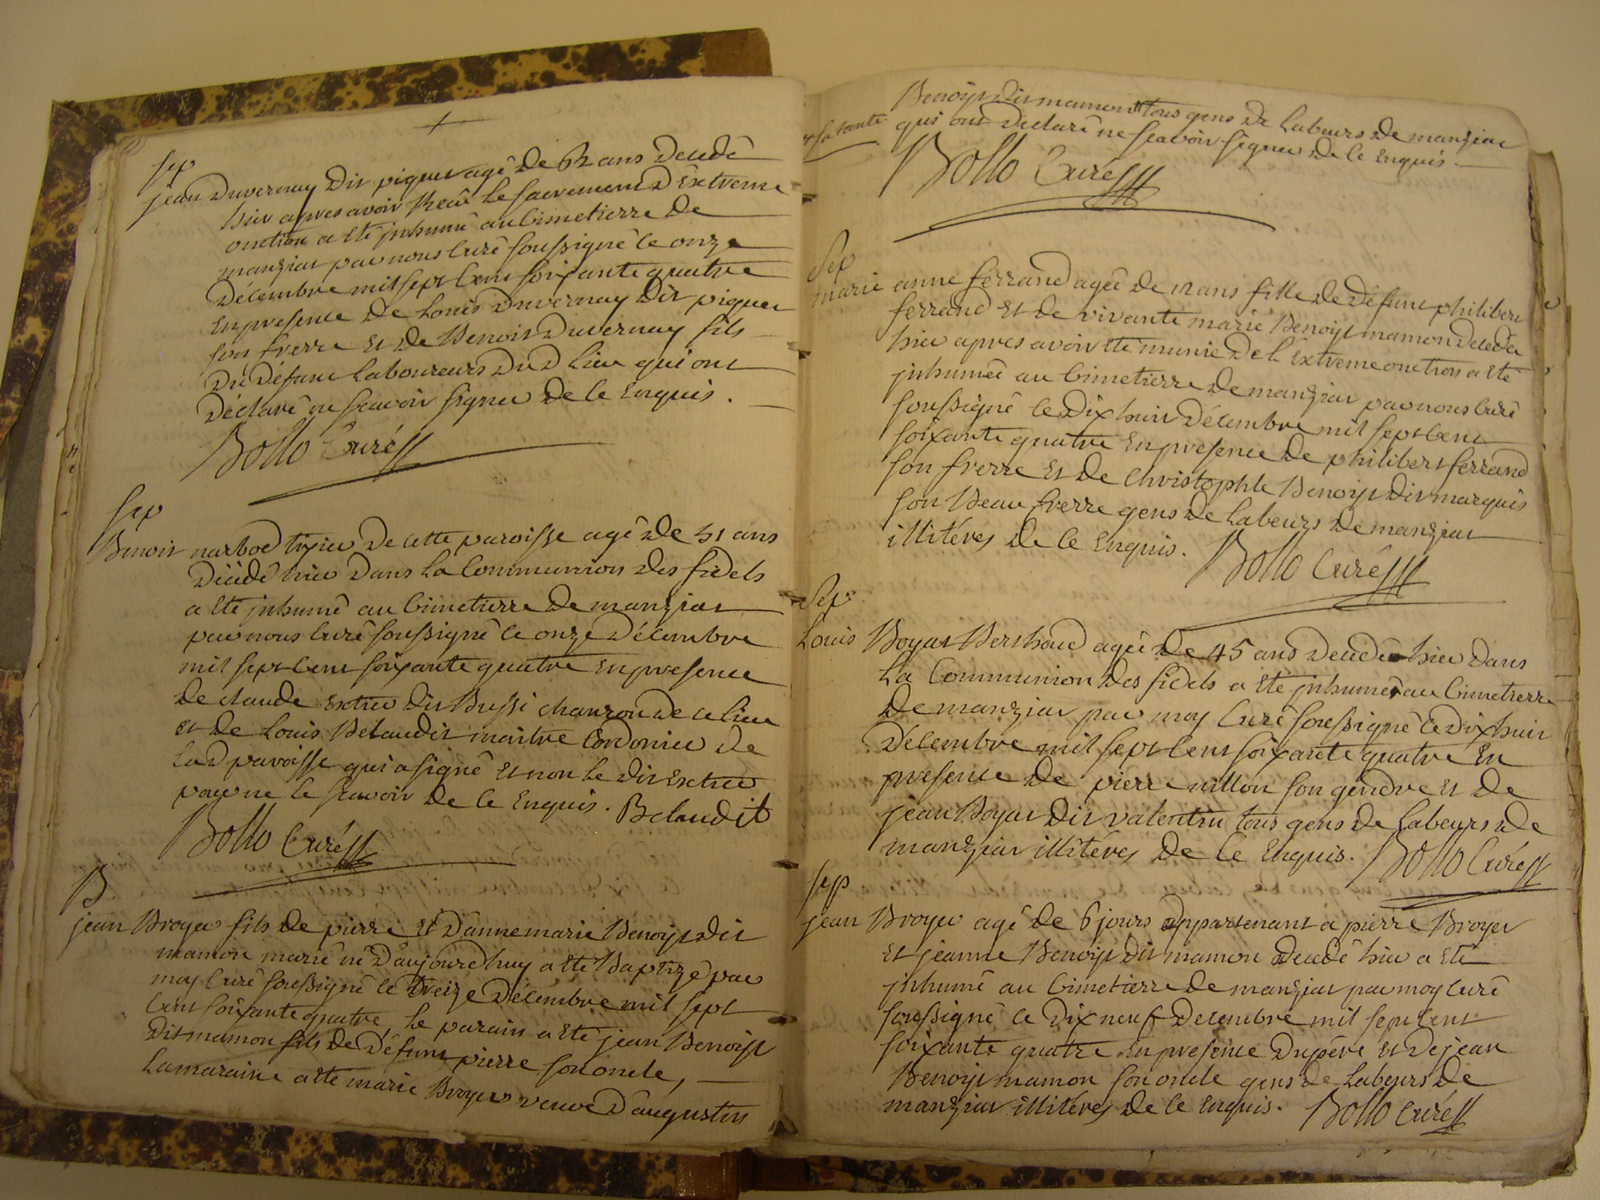 Sep
jean Duvernay Dit piquet agê de 62 ans Decedê
hier apres avoir Receu le sacrement D'Extreme
onction a Eté jnhumé au Cimetierre de
manziat par nous Curé soussigné le onze
Décembre mil sept Cent soixante quatre
En presence de Louis Duvernay Dit piquet
son frerre Et de Benoit Duvernay fils
Du Défunt Laboureurs Du D Lieu qui ont
Déclaré ne scavoir signer de ce Enquis.
Bollo Curé
Sep
Benoit narbod tixier De cette paroisse agé de 51 ans
Décédé hier Dans La Communion Des fidels
a Eté jnhumé au Cimetierre de manziat
par nous Curé soussigné le onze Décembre
mil sept Cent soixante quatre En presence
de claude Extier dit Bussi de ce Lieu
Et de Louis Belaudit maitre Cordonier de
La D paroisse qui a signé Et non Le dit Extier
pour ne le scavoir de ce Enquis. Belaudit
Bollo Curé
B
jean Broyer fils de pierre Et D'anne marie Benoist dit
mamon marié né D'aujourd'huy a Eté Baptizé par
moy Curé soussigné le treize Décembre mil sept
Cent soixante quatre le parain a Eté jean Benoist
Dit mamon fils de Défunt pierre son oncle,
La maraine a Eté marie Broyer veuve D'augustin
Benoist dit mamon tous gens De Labeurs de manziat
qui ont Declaré ne scavoir signer de ce Enquis
Bollo Curé
Sep
marie anne ferrand agée de 12 ans fille de Défunt philibert
ferrand Et de vivante marie Benoist mamon Decedée
hier apres avoir Eté munie de L'Extreme onction a Eté
jnhumée au Cimetierre de manziat par nous Curé
soussigné le Dix huit Décembre mil sept Cent
soixante quatre En presence de philibert ferrand
son frerre Et de Christophle Benoist dit marquis
son Beau frerre gens de Labeurs de manziat
illitérés de ce Enquis. Bollo Curé
Sep
Louis Boyat Berthoud agé de 45 ans Decedé hier dans
La Communion des fidels a Eté jnhumé au Cimetierre
De manziat par moy Curé soussigné le Dix huit
Décembre mil sept Cent soixante quatre En
presence de pierre nillon son gendre Et de
jean Boyat dit valentin tous gens de Labeurs de
manziat illitérés de ce Enquis. Bollo Curé
Sep
jean Broyer agé de 6 jours appartenant a pierre Broyer
Et jeanne Benoist dit mamon Decedé hier a Eté
jnhumé au Cimetierre de manziat par moy Curé
soussigné le Dix neuf Decembre mil sept Cent
soixante quatre En presence Du pére Et de jean
Benoist mamon son oncle gens de Labeurs de
manziat illitérés de ce Enquis. Bollo Curé